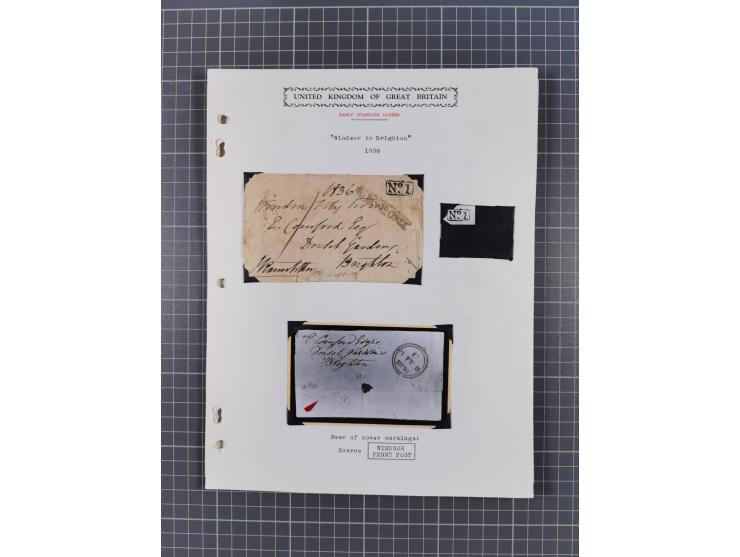 UNITED KINGDOM OF GREAT BRITAIN
EARLY STAMPLESS COVERS
"Windsor to Brighton"
1836
1836
No. 1
Windsor July
E. Cornford Esq
Dorset Gardens
Brighton
No. 1
E Cornford Esqre
Dorset Gardens
Brighton
Rear of cover markings:
Scarce
WINDSOR
PENNY POST